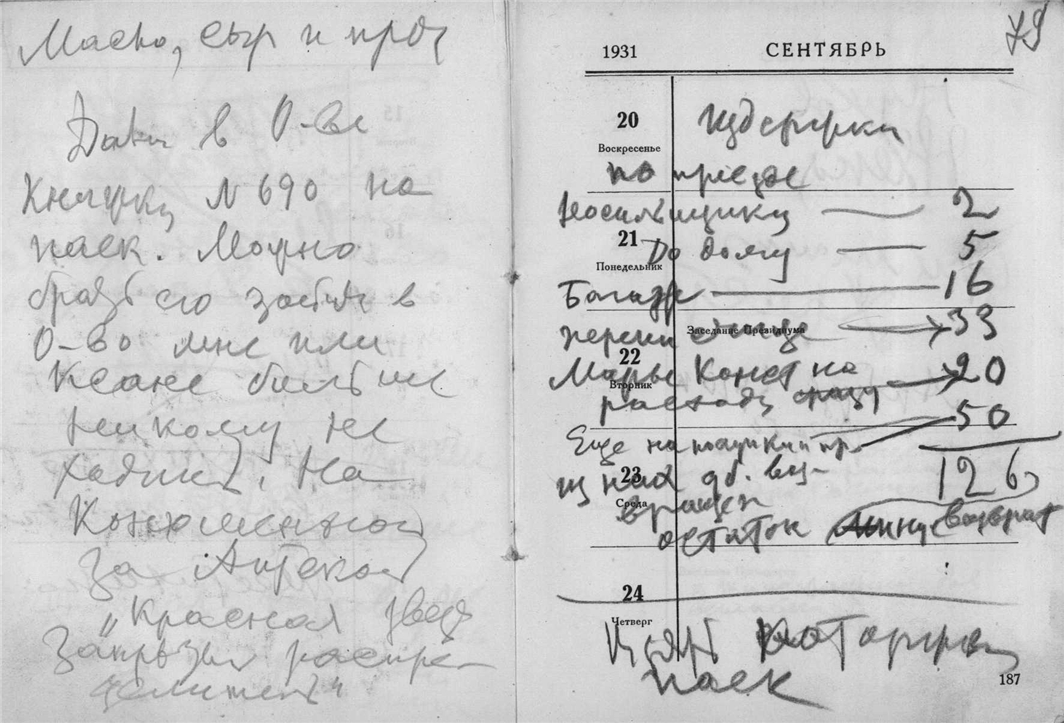 Масло, сыр и проч
Дали в О-ве
Книжку N 690 на
паек. Можно
брать его зайдя в
О-во мне или
Ксане больше
никому не
ходить. На
Конюшенной
За Аптекой
„Красная Звезда
Закрытый распре-
делитель"
79
1931 СЕНТЯБРЬ
20 Издержки
Воскресенье
по приезде
Носильщику — 2
21 До дому — 5
Понедельник
Багаж — 16
Заседание Президиума
33
22
Марье Конст на 20
Вторник
расходы сразу
50
Еще на покупки и пр.
126
23 из них
Среда
остаток минус возврат
24
Четверг
Взять
паек
187